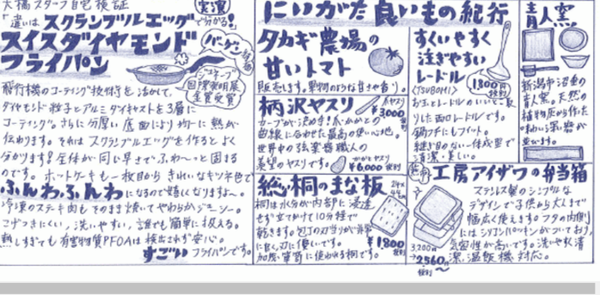 大橋スタッフ自宅検証
違いはスクランブルエッグで分かる!
実演
スイスダイヤモンド
フライパン
バーゲン
ジュネーブ
国際発明展
金賞受賞
飛行機のコーティング技術を活かして、
ダイヤモンド粒子とアルミダイキャストを3層に
コーティング。さらに分厚い底面により均一に熱が
伝わります。それはスクランブルエッグを作るとよく
分かります!全体が同じ早さでふわ〜っと固まる
のです。ホットケーキも一枚目からきれいなキツネ色で
ふんわふんわになるので嬉しくなりますよ〜。
冷凍のステーキ肉もそのまま焼いてやわらかジューシー。
こげつきにくい、洗いやすい、誰でも簡単に扱える。
熱しすぎても有害物質PFOAは検出されず安心。
すごいフライパンです。
にいがた良いもの紀行
タカギ農場の
甘いトマト
販売します。果物のような甘さや香り。
柄沢ヤスリ
¥3,000
カーブが決め手
曲線に合わせた最高の使い心地。
世界中の弦楽器職人の
¥6,000
総桐のまな板
桐は水分が内部に浸透
せず立てかけて10分程で
乾きます。包丁の刃当りが非常
に良く刃に優しいです。
加茂・家具に使われる桐です。
¥1800
すくいやすく
注ぎやすい
レードル
(TSUBOE)
1300円
お玉とレードルのいいとこ取
りした面口レードルです。
鍋フチにもフィット。
継ぎ目のない一体成型で
清潔・美しい。
青人窯
新潟市沼垂の
青人窯。天然の
植物灰から作った
味わい深い器が
並びます。
工房アイザワの弁当箱
ステンレス製のシンプルな
デザインで子供から大人まで
幅広く使えます。フタの内側
にはシリコンパッキンがついており、
気密性が高いです。洗いやすく清
潔、温飯機対応。
3,200円
2560円〜